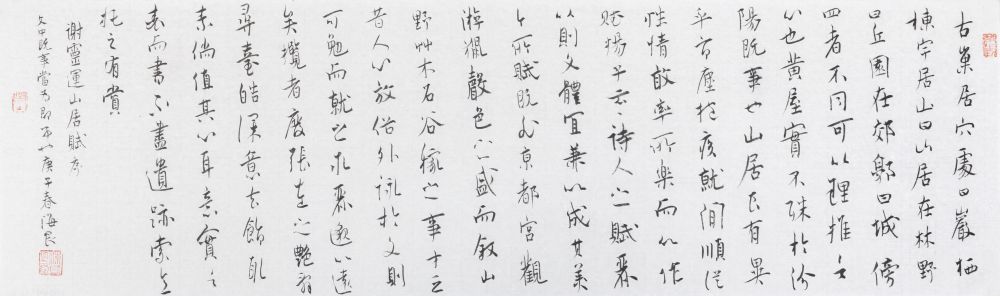 古巢居穴處曰巖栖
棟宇居山曰山居在林野
曰丘園在郊郭曰城傍
四者不同可以理推言
心也黄屋實不殊於汾
陽既事也山居良有異
乎市廛抱疾就閒順從
性情敢率所樂而以作
賦揚子云云詩人之賦麗
以則文體宜兼以成其美
今所賦既非京都宮觀
游獵聲色之盛而叙山
野艸木石谷稼之事才乏
昔人心放俗外詠於文則
可勉而就之求麗邈以遠
矣攬者廢張左之艷辭
尋臺皓深意去飾取
素倘值其心耳意實言
表而書不盡遺跡索意
托之有賞
謝靈運山居賦序
文中既事當为即事 庚子春海